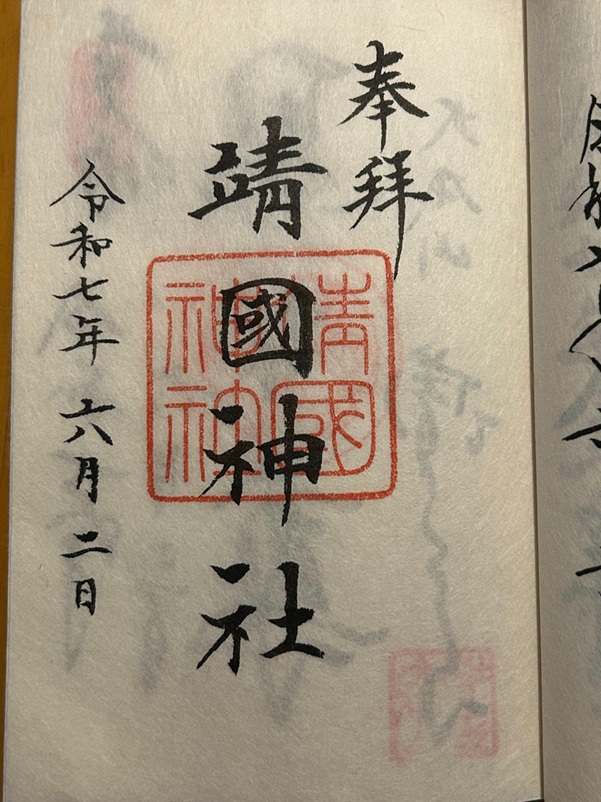 奉拝
靖國神社
靖國
神社
令和七年 六月二日